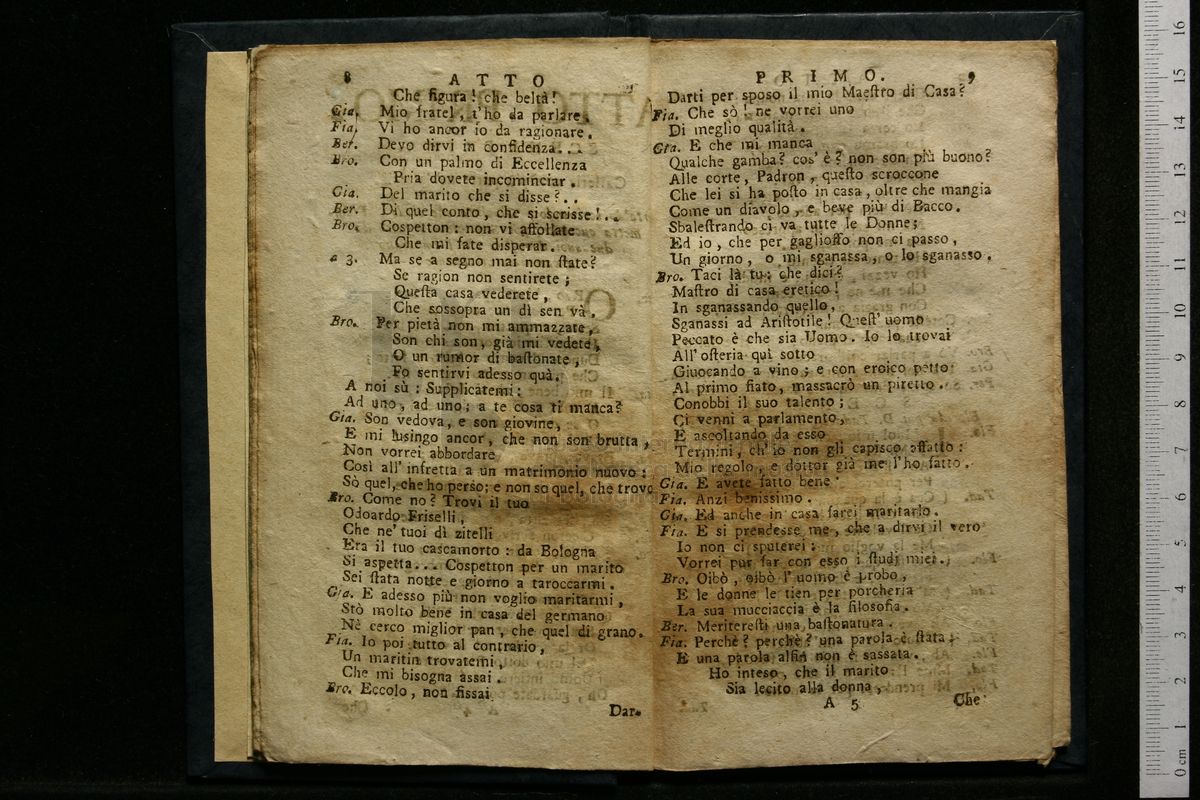 8 ATTO
Che figura! che beltà!
Gia. Mio fratel, t'ho da parlare.
Fia. Vi ho ancor io da ragionare.
Ber. Devo dirvi in confidenza...
Bro. Con un palmo di Eccellenza
Pria dovete incominciar.
Gia. Del marito che si disse?..
Ber. Di quel conto, che si scrisse!..
Bro. Cospetton: non vi affollate
Che mi fate disperar.
a 3. Ma se a segno mai non ſtate?
Se ragion non sentirete;
Queſta casa vederete,
Che sossopra un dì sen và.
Bro. Per pietà non mi ammazzate,
Son chi son, già mi vedete,
O un rumor di baſtonate,
Fo sentirvi adesso quà.
A noi sù: Supplicatemi:
Ad uno, ad uno; a te cosa ti manca?
Gia. Son vedova, e son giovine,
E mi lusingo ancor, che non son brutta,
Non vorrei abbordare
Così all' infretta a un matrimonio nuovo:
Sò quel, che ho perso; e non so quel, che trovo
Bro. Come no? Trovi il tuo
Odoardo Friselli,
Che ne' tuoi dì zitelli
Era il tuo cascamorto: da Bologna
Si aspetta... Cospetton per un marito
Sei ſtata notte e giorno a taroccarmi.
Gia. E adesso più non voglio maritarmi,
Stò molto bene in casa del germano
Nè cerco miglior pan, che quel di grano.
Fia. Io poi tutto al contrario,
Un maritin trovatemi,
Che mi bisogna assai.
Bro. Eccolo, non fissai
Dar-
PRIMO. 9
Darti per sposo il mio Maeſtro di Casa?
Fia. Che sò! ne vorrei uno
Di meglio qualità.
Gia. E che mi manca
Qualche gamba? cos' è? non son più buono?
Alle corte, Padron, queſto scroccone
Che lei si ha poſto in casa, oltre che mangia
Come un diavolo, e beve più di Bacco.
Sbaleſtrando ci va tutte le Donne;
Ed io, che per gaglioffo non ci passo,
Un giorno, o mi sganassa, o lo sganasso.
Bro. Taci là tu: che dici?
Maſtro di casa eretico!
In sganassando quello,
Sganassi ad Ariſtotile! Queſt' uomo
Peccato è che sia Uomo. Io lo trovai
All' oſteria quì sotto
Giuocando a vino; e con eroico petto
Al primo fiato, massacrò un piretto.
Conobbi il suo talento;
Ci venni a parlamento,
E ascoltando da esso
Termini, ch' io non gli capisco affatto:
Mio regolo, e dottor già me l' ho fatto.
Gia. E avete fatto bene
Fia. Anzi benissimo.
Gia. Ed anche in casa farei maritarlo.
Fia. E si prendesse me, che a dirvi il vero
Io non ci sputerei:
Vorrei pur far con esso i ſtudj miei.
Bro. Oibò, oibò l' uomo è probo,
E le donne le tien per porcheria
La sua mucciaccia è la filosofia.
Ber. Meritereſti una baſtonatura.
Fia. Perchè? perchè? una parola è ſtata;
E una parola alfin non è sassata.
Ho inteso, che il marito
Sia lecito alla donna,
A 5 Che